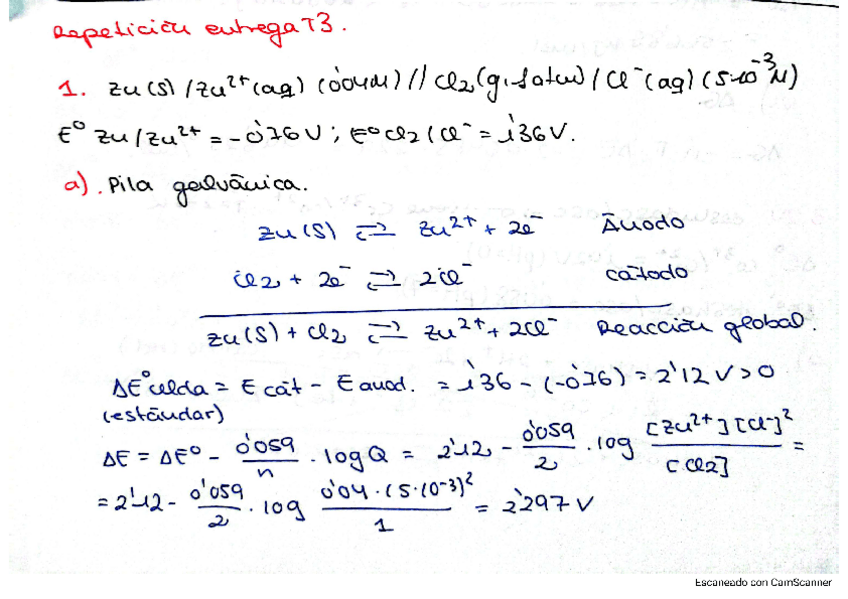 Repetición entrega T3.
1. Zn (s) / Zn²⁺ (aq) (0'04M) // Cl₂ (g, 1 atm) / Cl⁻ (aq) (5·10⁻³ M)
E⁰ Zn/Zn²⁺ = -0'76 V ; E⁰ Cl₂/Cl⁻ = 1'36 V.
a). Pila galvánica.
Zn (s) ⇄ Zn²⁺ + 2e⁻ Ánodo
Cl₂ + 2e⁻ ⇄ 2Cl⁻ cátodo
Zn (s) + Cl₂ ⇄ Zn²⁺ + 2Cl⁻ Reacción global.
ΔE⁰celda = E cát - E anod. = 1'36 - (-0'76) = 2'12 V > 0
(estándar)
ΔE = ΔE⁰ - 0'059/n · log Q = 2'12 - 0'059/2 · log [Zn²⁺][Cl⁻]²/[Cl₂] =
= 2'12 - 0'059/2 · log 0'04 · (5·10⁻³)²/1 = 2'297 V
Escaneado con CamScanner